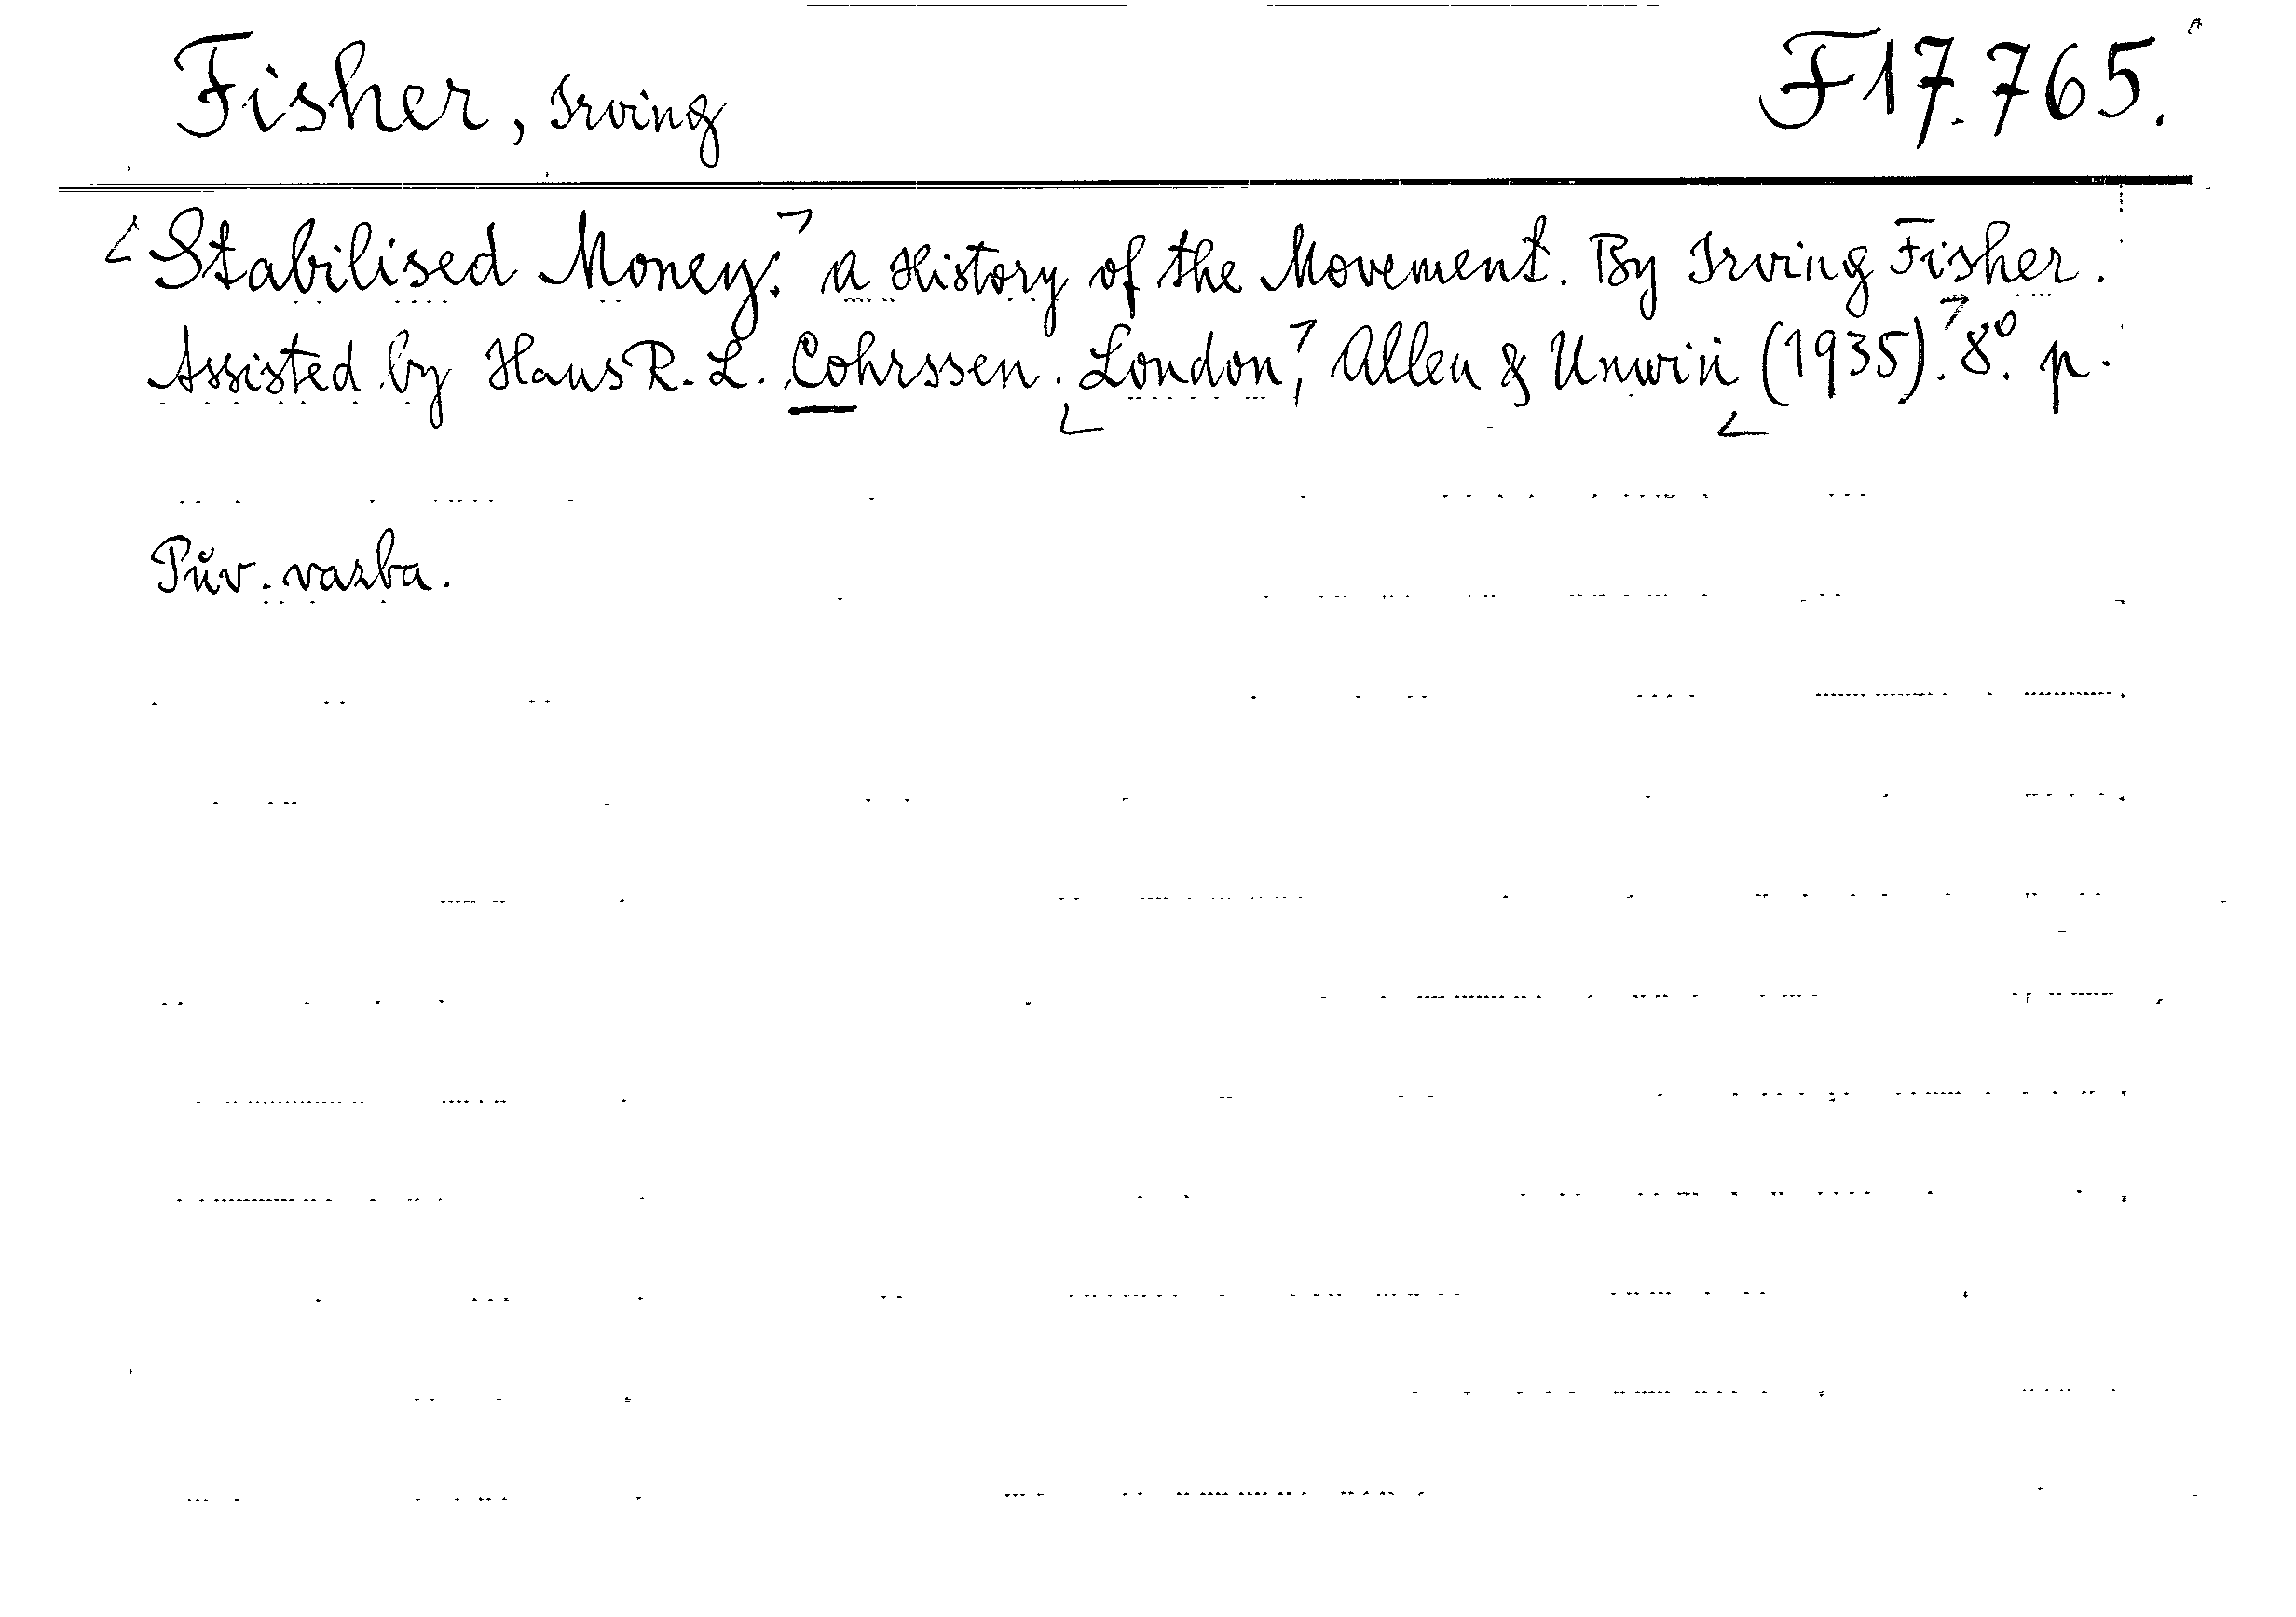 Fisher, Irving F 17.765.
Stabilised Money. A History of the Movement. By Irving Fisher.
Assisted by Hans R. L. Cohrssen. London, Allen & Unwin (1935). 8°. p.
Pův. vazba.